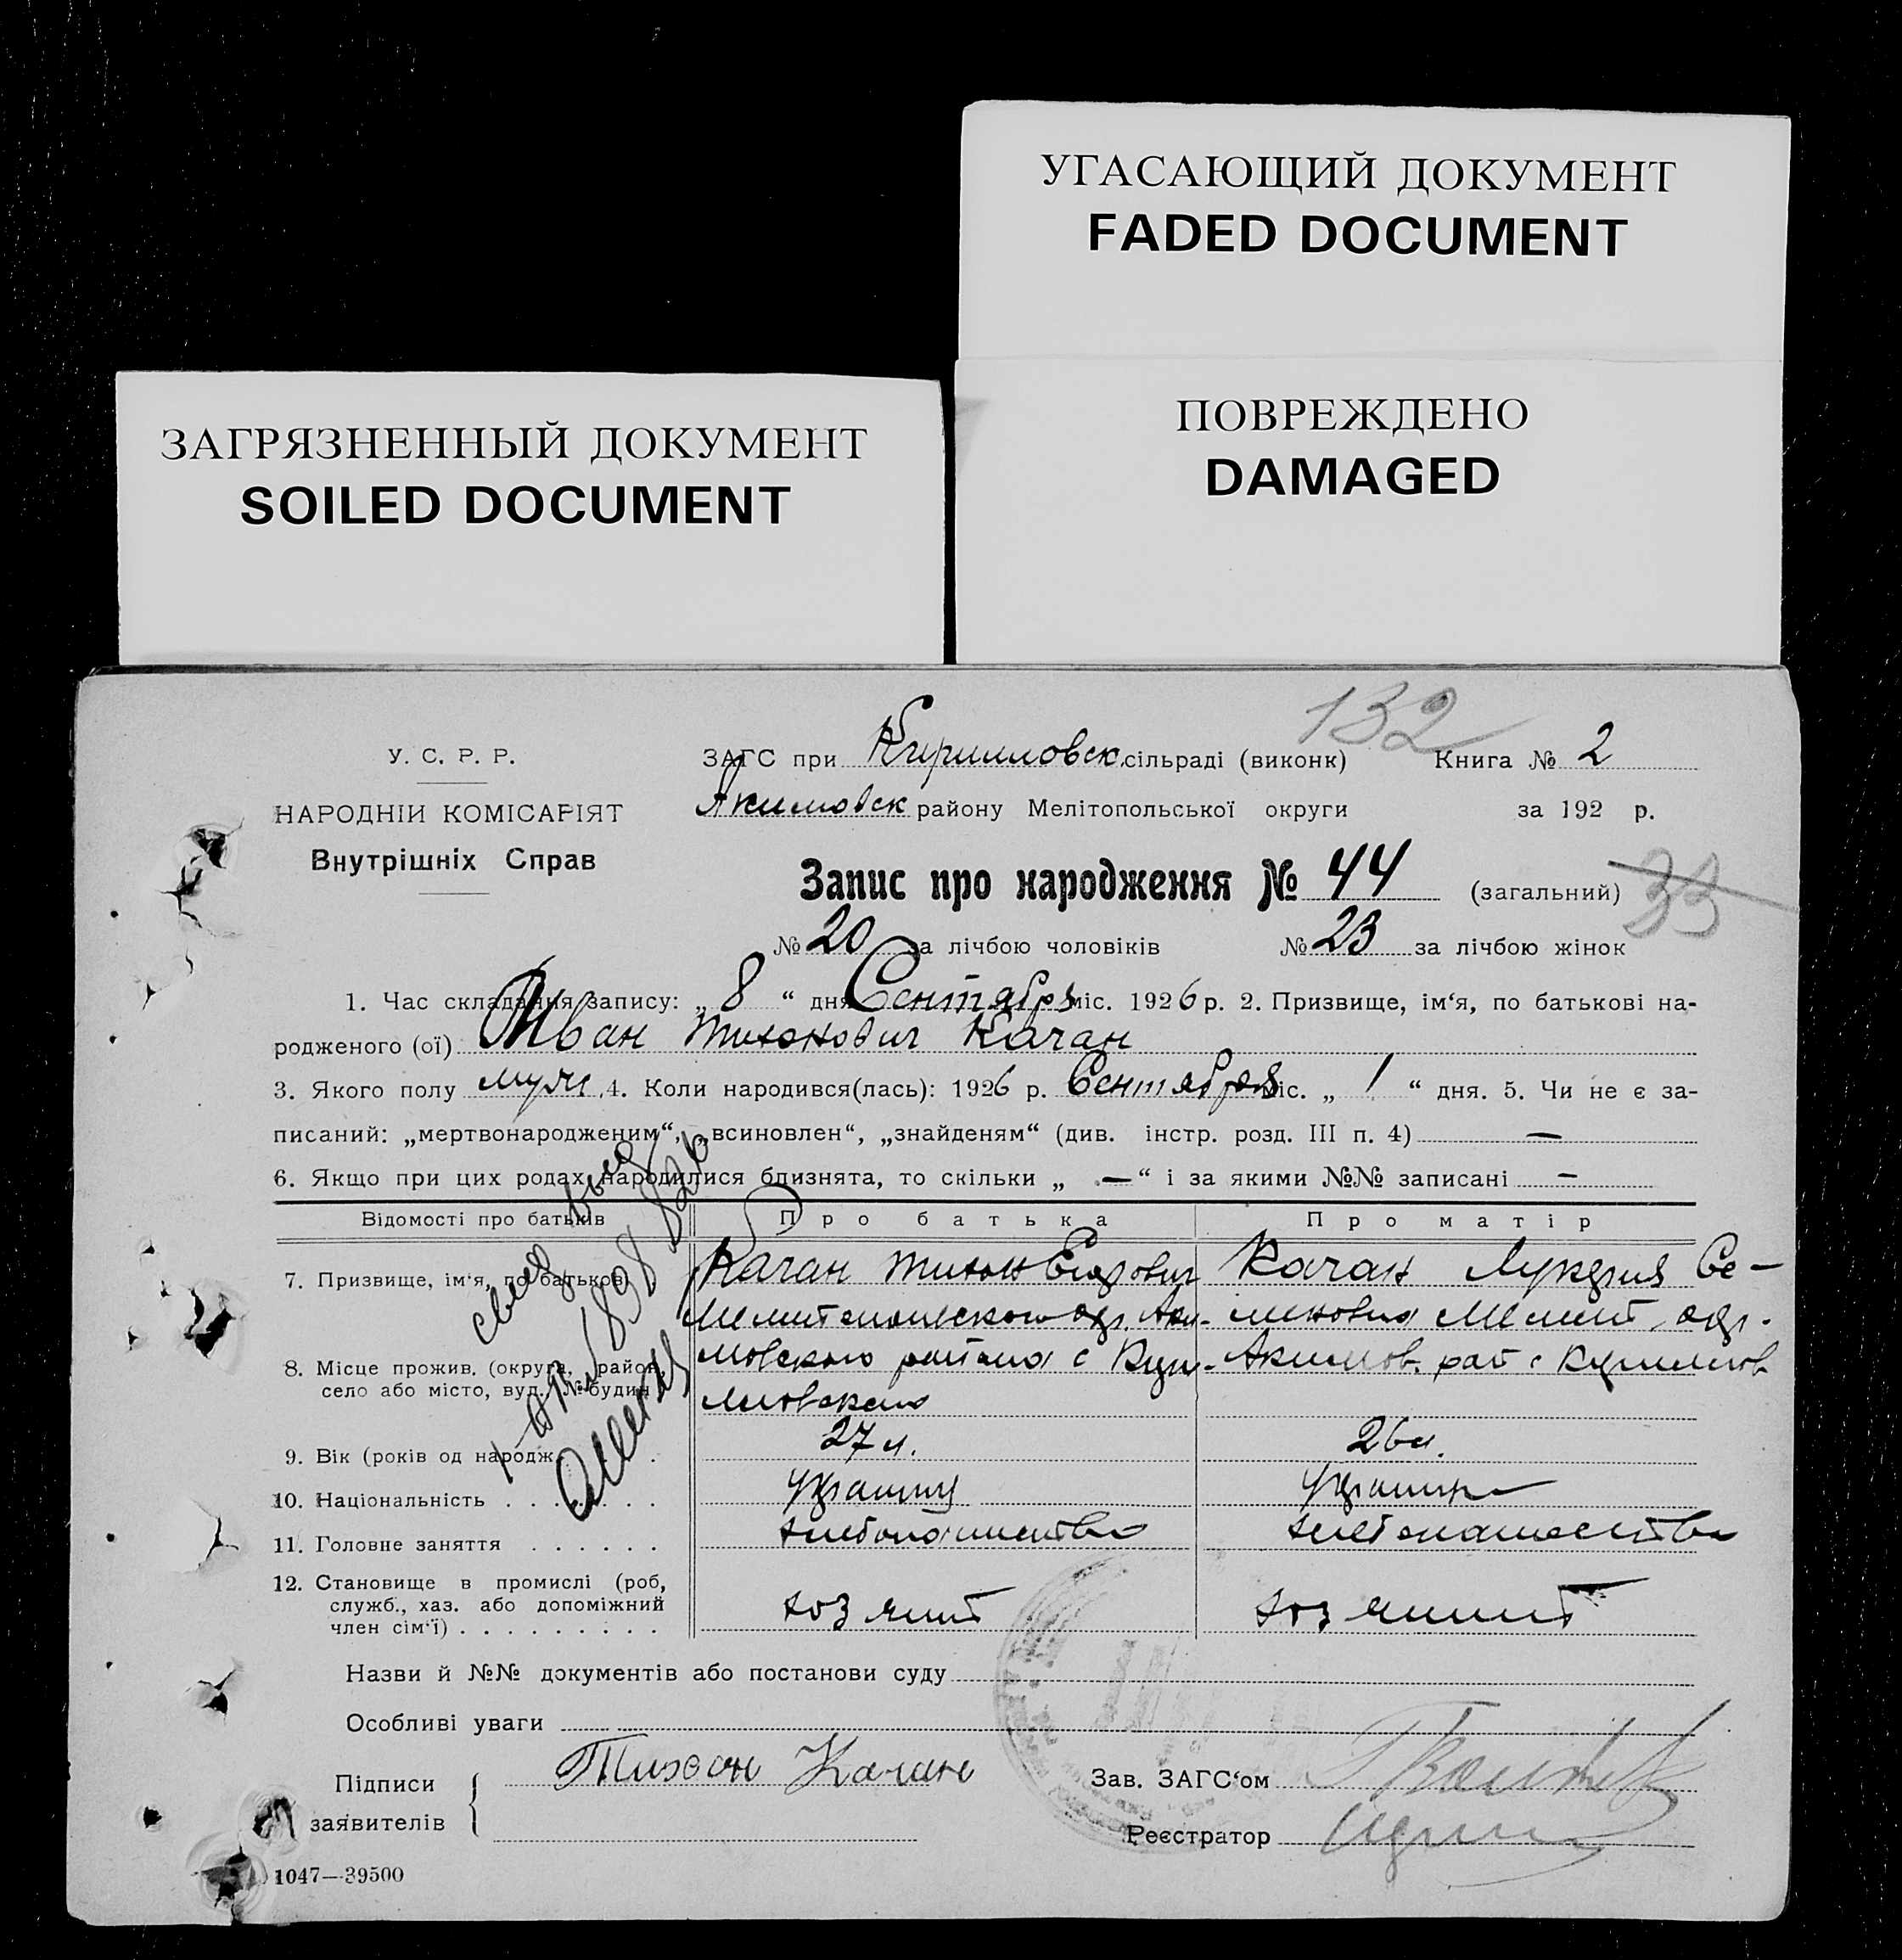 УГАСАЮЩИЙ ДОКУМЕНТ
FADED DOCUMENT
ЗАГРЯЗНЕННЫЙ ДОКУМЕНТ
SOILED DOCUMENT
ПОВРЕЖДЕНО
DAMAGED
132
У. С. Р. Р.
ЗАГС при Кирилловск. сільраді (виконк) Книга № 2
НАРОДНІЙ КОМІСАРІЯТ
Акимовск району Мелітопольської округи за 192 р.
Внутрішніх Справ
Запис про народження № 44 (загальний) 33
№ 20 за лічбою чоловіків № 23 за лічбою жінок
1. Час складання запису: „ 8 “ дня Сентября міс. 1926 р. 2. Призвище, ім‘я, по батькові на-
родженого (ої) Иван Тихонович Качан
3. Якого полу муж. 4. Коли народився(лась): 1926 р. Сентября міс. „ 1 “ дня. 5. Чи не є за-
писаний: „мертвонародженим“, „всиновлен“, „знайденям“ (див. інстр. розд. III п. 4) —
6. Якщо при цих родах народилися близнята, то скільки „ — “ і за якими №№ записані —
Відомості про батьків Про батька Про матір
7. Призвище, ім‘я, по батькові Качан Тихон Егорович Качан Лукерия Се-
Мелитопольского окр. Аки- меновна Мелит. окр.
8. Місце прожив. (округа, район, мовского района с Кири- Акимов. рай с Кириллов
село або місто, вул., № будин.) лловского
9. Вік (років од народж. 27 л. 26 л.
10. Національність . . . . . . Украинц Украинка
11. Головне заняття . . . . . . хлебопашество хлебопашество
12. Становище в промислі (роб,
служб., хаз. або допоміжний
член сім‘ї) . . . . . . . . .
Назви й №№ документів або постанови суду
Особливі уваги
Підписи Тихон Качан Зав. ЗАГС‘ом
заявителів Реєстратор
1047—39500